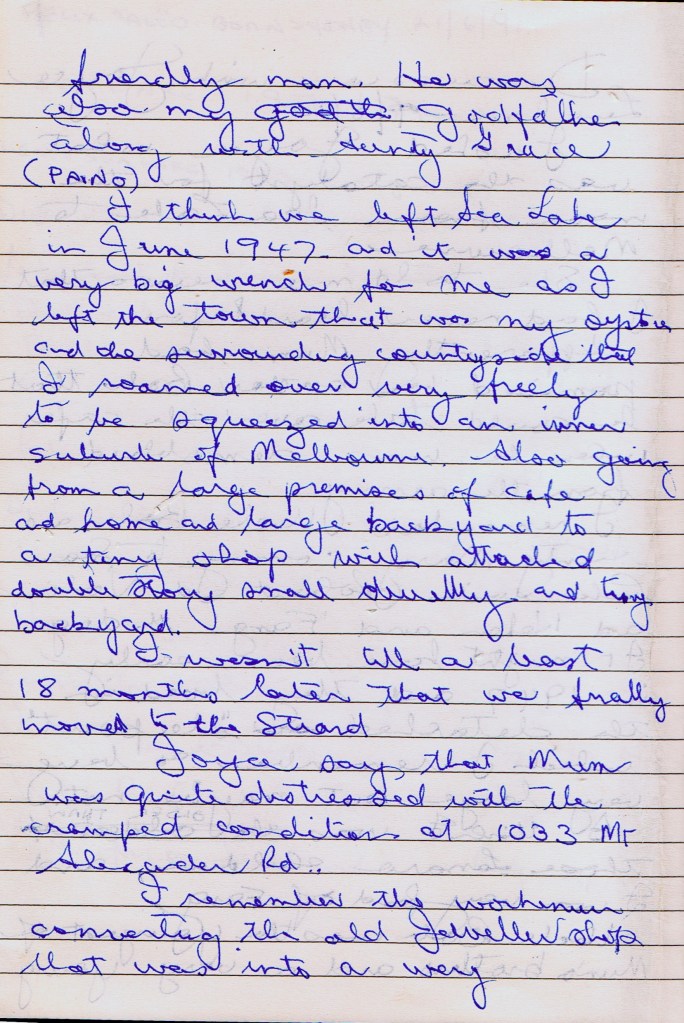 friendly man. He was
also my godth godfather
along with Aunty Grace
(PAINO)
I think we left Sea Lake
in June 1947. ad it was a
very big wrench for me as I
left the town that was my oyster
and the surrounding countryside that
I roamed over very freely
to be squeezed into an inner
suburb of Melbourne. Also going
from a large premises of cafe
ad home and large backyard to
a tiny shop with attached
double story small dwelling and tiny
backyard.
I wasn't till a least
18 months later that we finally
moved to the Strand
Joyce says that Mum
was quite distressed with the
cramped conditions at 1033 Mt
Alexander Rd..
I remember the workmen
converting the old Jeweller shop
that was into a very